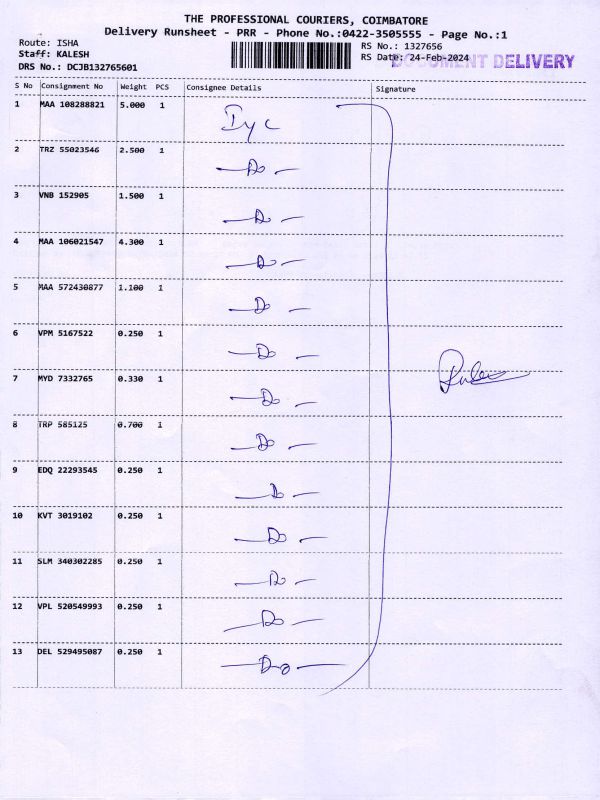 THE PROFESSIONAL COURIERS, COIMBATORE
Delivery Runsheet - PRR - Phone No.:0422-3505555 - Page No.:1
Route: ISHA
Staff: KALESH
DRS No.: DCJB132765601
RS No.: 1327656
RS Date: 24-Feb-2024
DOCUMENT DELIVERY
S No Consignment No Weight PCS Consignee Details Signature
1 MAA 108288821 5.000 1 Iyc
2 TRZ 55023546 2.500 1 — Do —
3 VNB 152905 1.500 1 — Do —
4 MAA 106021547 4.300 1 — Do —
5 MAA 572430877 1.100 1 — Do —
6 VPM 5167522 0.250 1 — Do —
7 MYD 7332765 0.330 1 — Do —
8 TRP 585125 0.700 1 — Do —
9 EDQ 22293545 0.250 1 — Do —
10 KVT 3019102 0.250 1 — Do —
11 SLM 340302285 0.250 1 — Do —
12 VPL 520549993 0.250 1 — Do —
13 DEL 529495087 0.250 1 — Do —